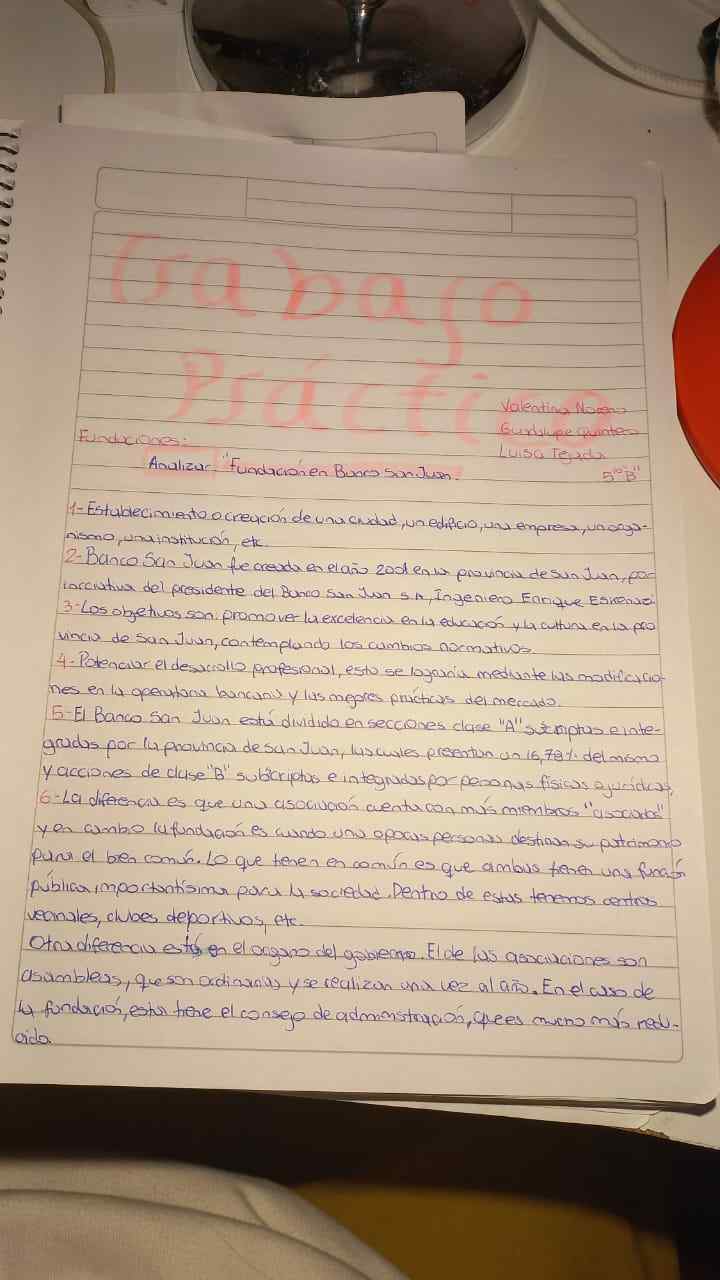 Trabajo
Práctico
Valentina Moreno
Guadalupe Quintero
Luisa Tejada
5to "B"
Fundaciones:
Analizar "Fundación en Banco San Juan.
1-Establecimiento o creación de una ciudad, un edificio, una empresa, un orga-
nismo, una institución, etc.
2-Banco San Juan fue creada en el año 2001 en la provincia de San Juan, por
iniciativa del presidente del Banco San Juan S.A, Ingeniero Enrique Eskenazi.
3-Los objetivos son: promover la excelencia en la educación y la cultura en la pro
vincia de San Juan, contemplando los cambios normativos.
4-Potenciar el desarrollo profesional, esto se lograría mediante las modificacio-
nes en la operatoria bancaria y las mejores prácticas del mercado.
5-El Banco San Juan está dividido en secciones clase "A" suscriptas e inte-
gradas por la provincia de San Juan, las cuales presentan un 16,78% del mismo
y acciones de clase "B" subscriptas e integradas por personas físicas o jurídicas.
6-La diferencia es que una asociación cuenta con más miembros "asociados"
y en cambio la fundación es cuando una o pocas personas destinan su patrimonio
para el bien común. Lo que tienen en común es que ambas tienen una función
pública, importantísima para la sociedad. Dentro de estas tenemos centros
vecinales, clubes deportivos, etc.
Otra diferencia está en el organo del gobierno. El de las asociaciones son
asambleas, que son ordinarias y se realizan una vez al año. En el caso de
la fundación, esta tiene el consejo de administración, que es mucho más redu-
cido.